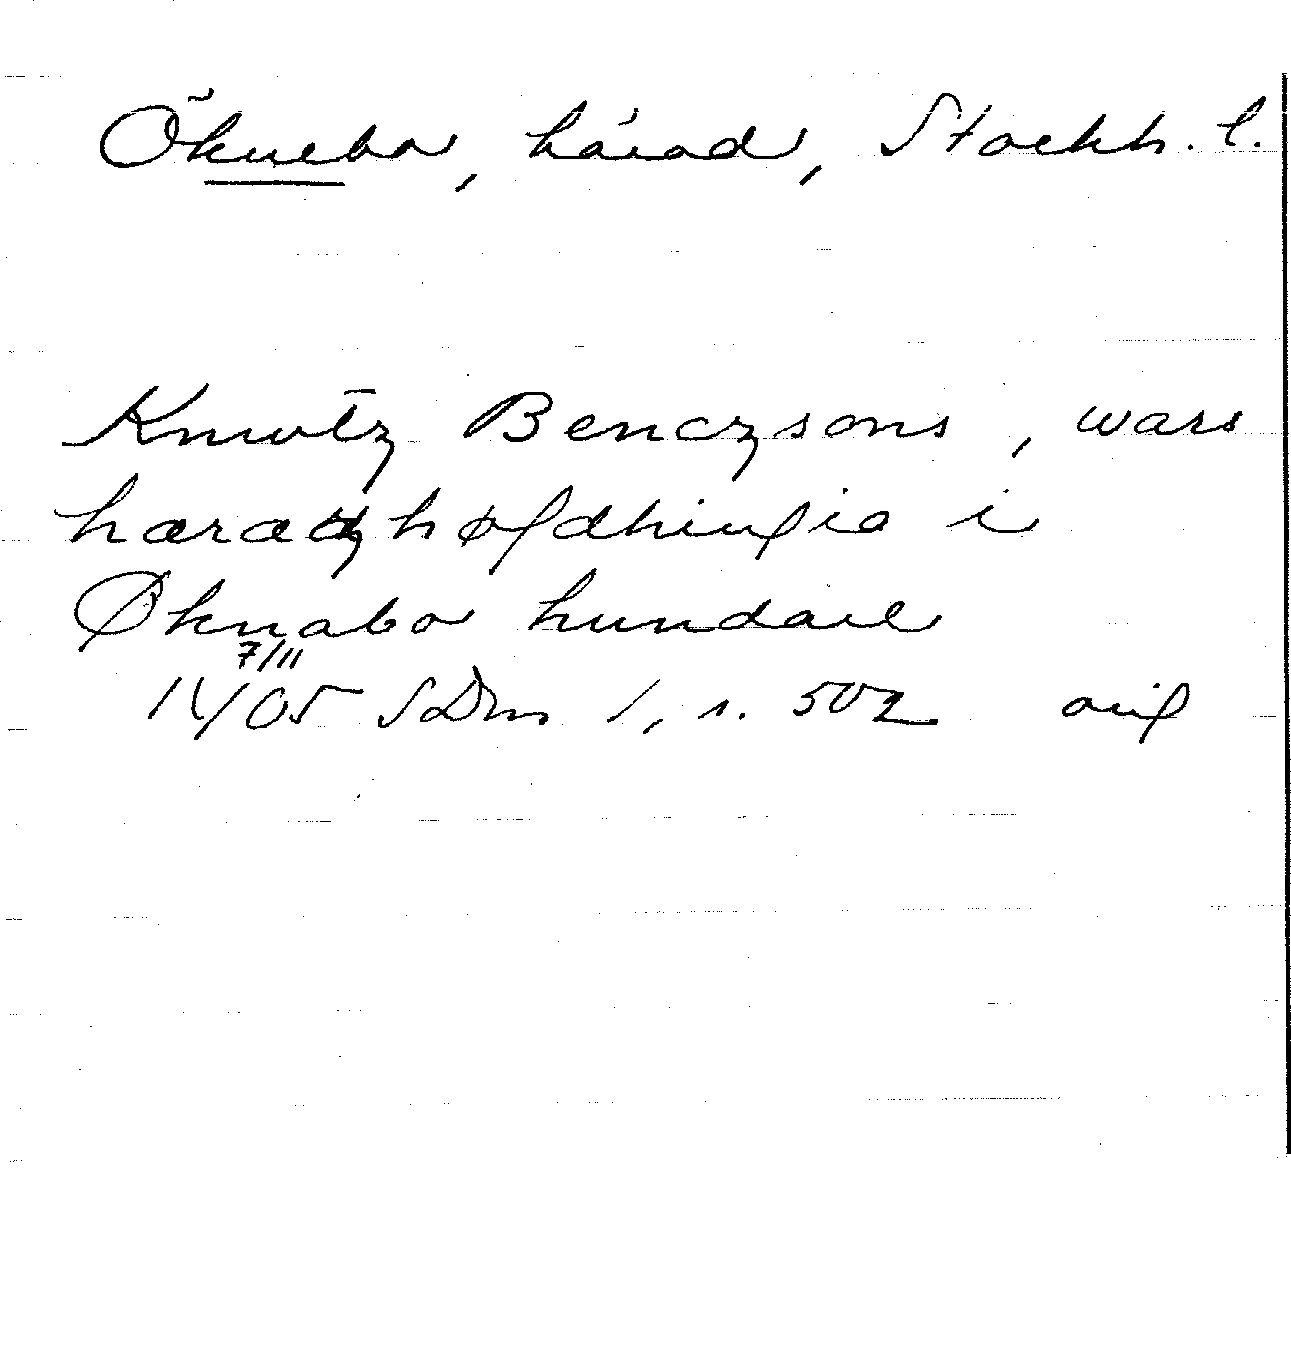 Öknebo, härad, Stockh. l.
Knwtz Benczsons, wars
hæradzhøfdhingia i
Øknabo hundare
7/11
1405 SDns 1, s. 502 orig